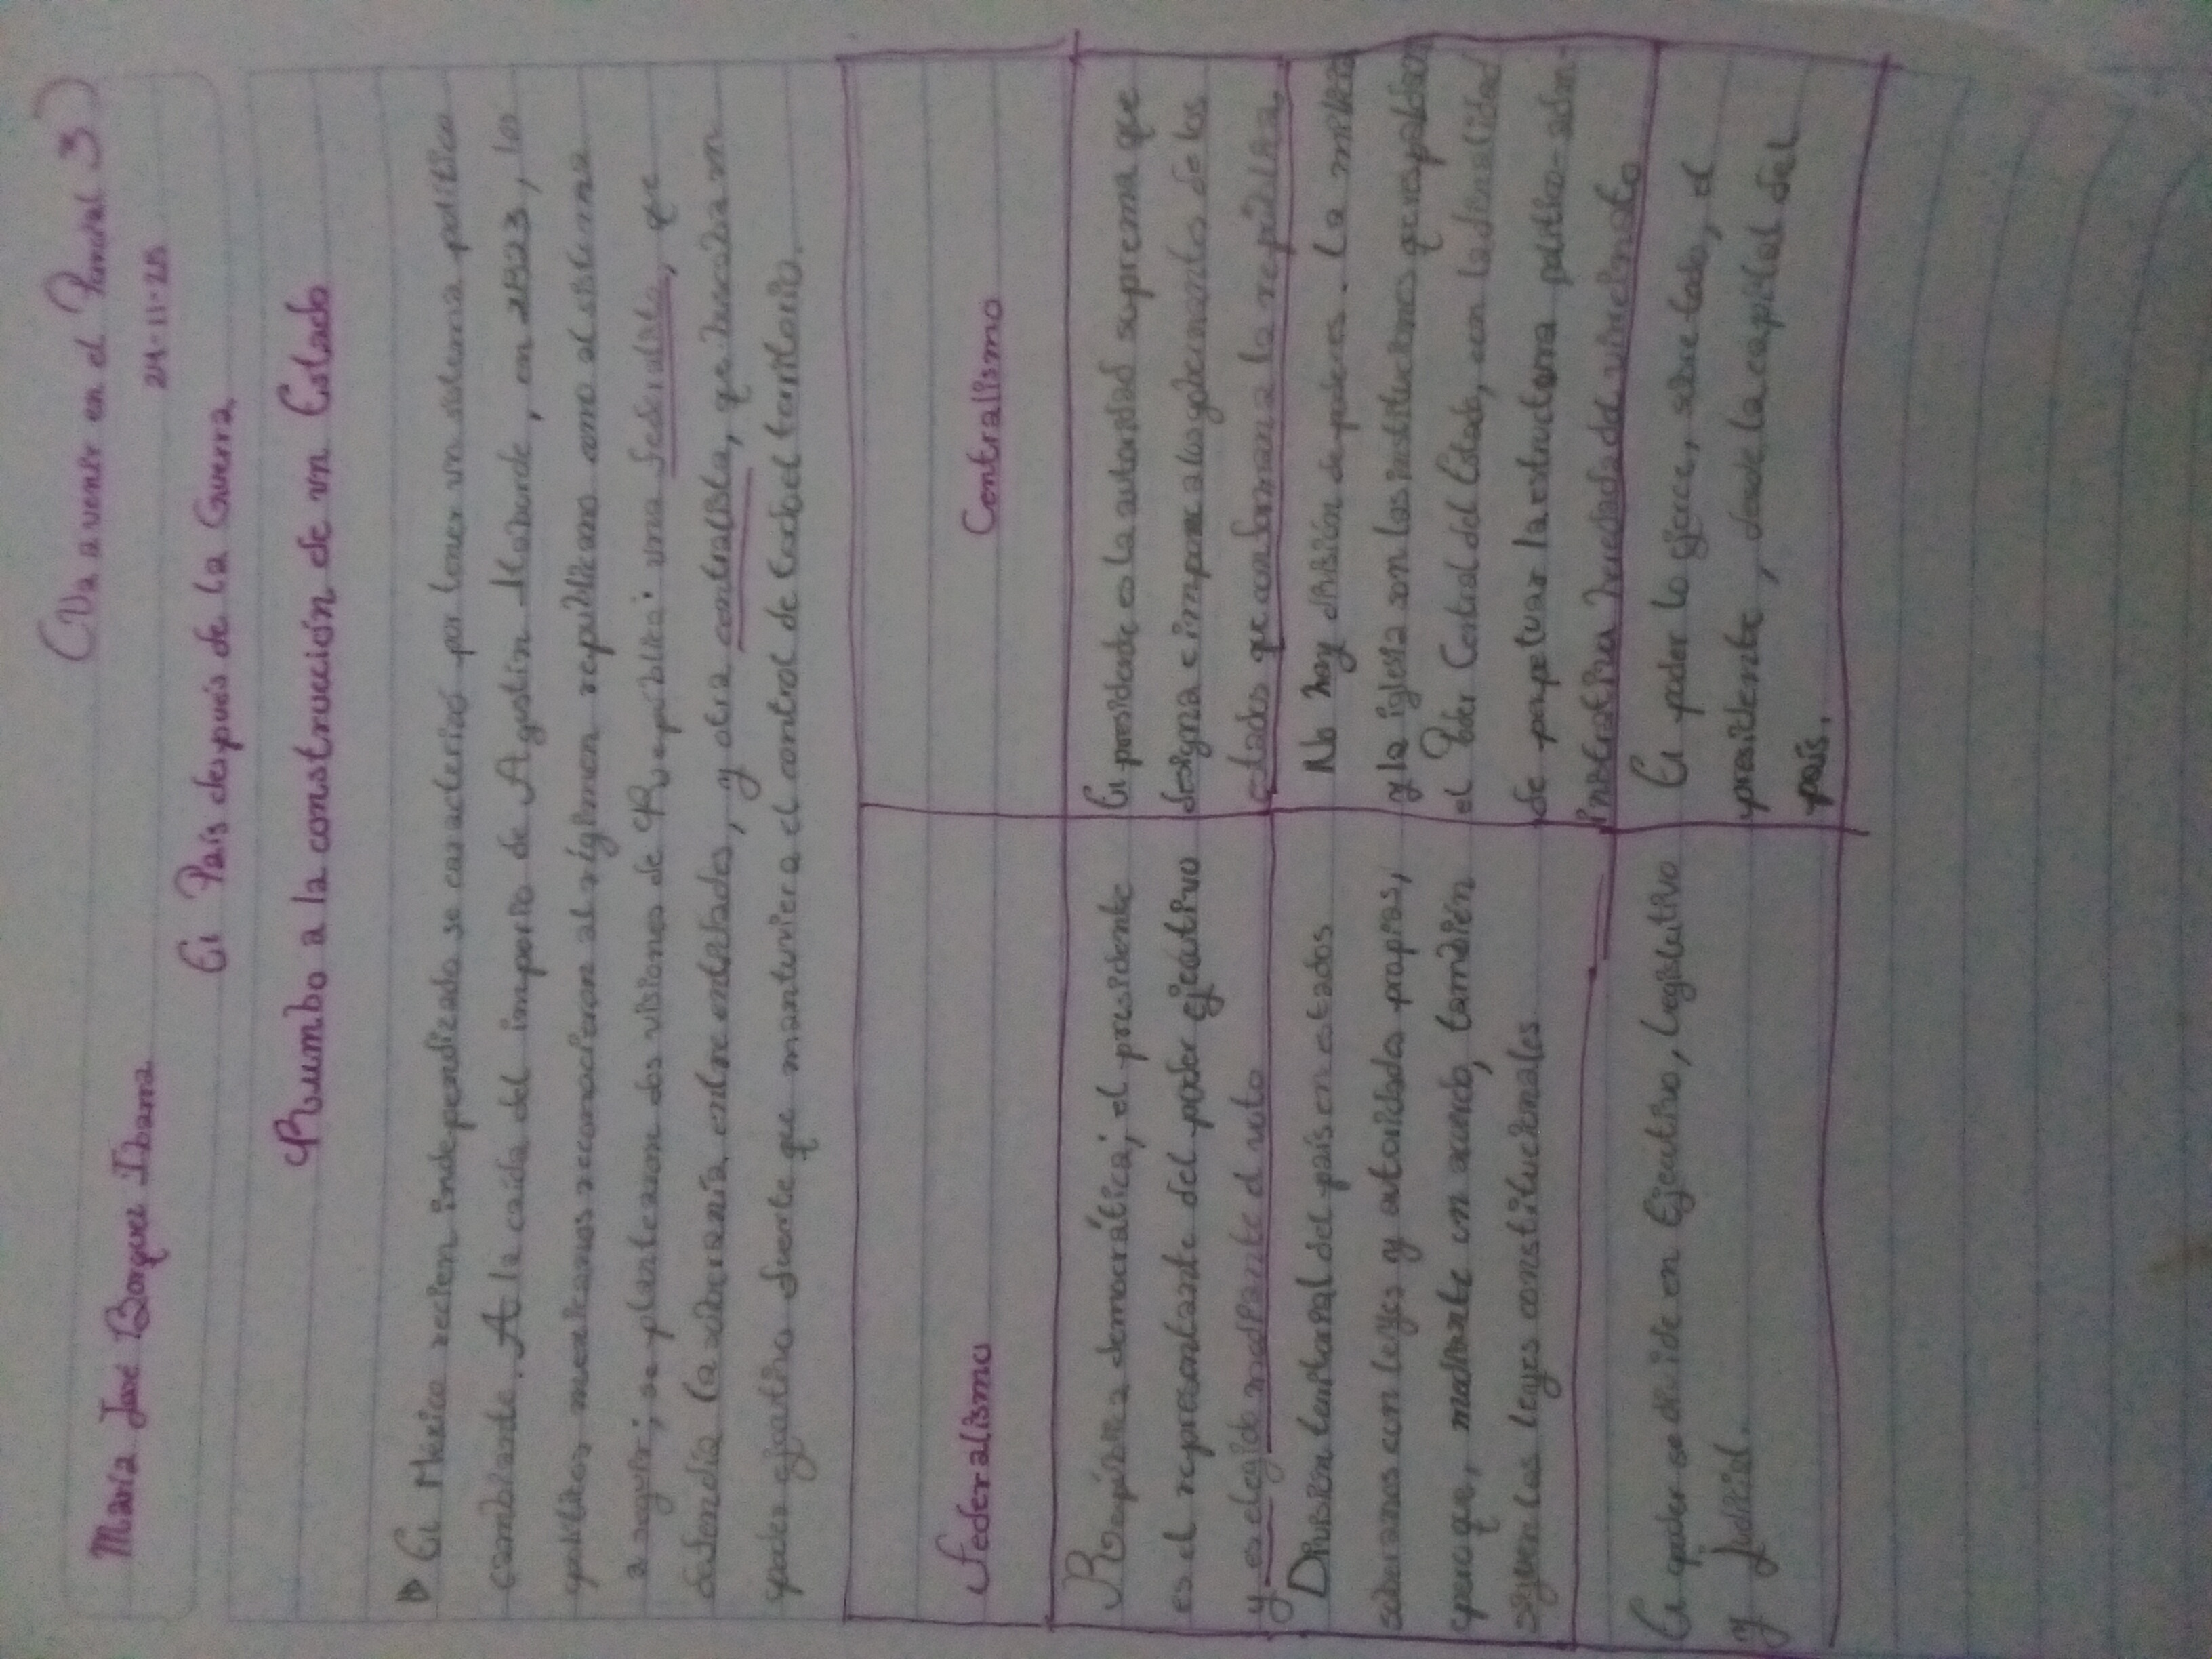 (Va a venir en el Parcial 3)
María José Borquez Ibarra 24-11-25
El País después de la Guerra
Rumbo a la construcción de un Estado
El México recien independizado se caracterizó por tener un sistema político
cambiante. A la caída del imperio de Agustín Iturbide, en 1823, los
políticos mexicanos reconocieron al régimen republicano como el sistema
a seguir; se plantearon dos visiones de República: una federalista, que
defendía la soberanía entre entidades, y otra centralista, que buscaba un
poder ejecutivo fuerte que mantuviera el control de todo el territorio.
Federalismo
República democrática; el presidente
es el representante del poder ejecutivo
y es elegido mediante el voto
División territorial del país en estados
soberanos con leyes y autoridades propias,
pero que, mediante un acuerdo, también
siguen las leyes constitucionales
El poder se divide en Ejecutivo, Legislativo
y Judicial.
Centralismo
El presidente es la autoridad suprema que
designa e impone a los gobernantes de los
estados que conforman a la república.
No hay división de poderes. La milicia
y la iglesia son las instituciones que respaldan
el Poder Central del Estado, con la finalidad
de perpetuar la estructura político-admi-
nistrativa heredada del virreinato
El poder lo ejerce, sobre todo, el
presidente, desde la capital del
país.